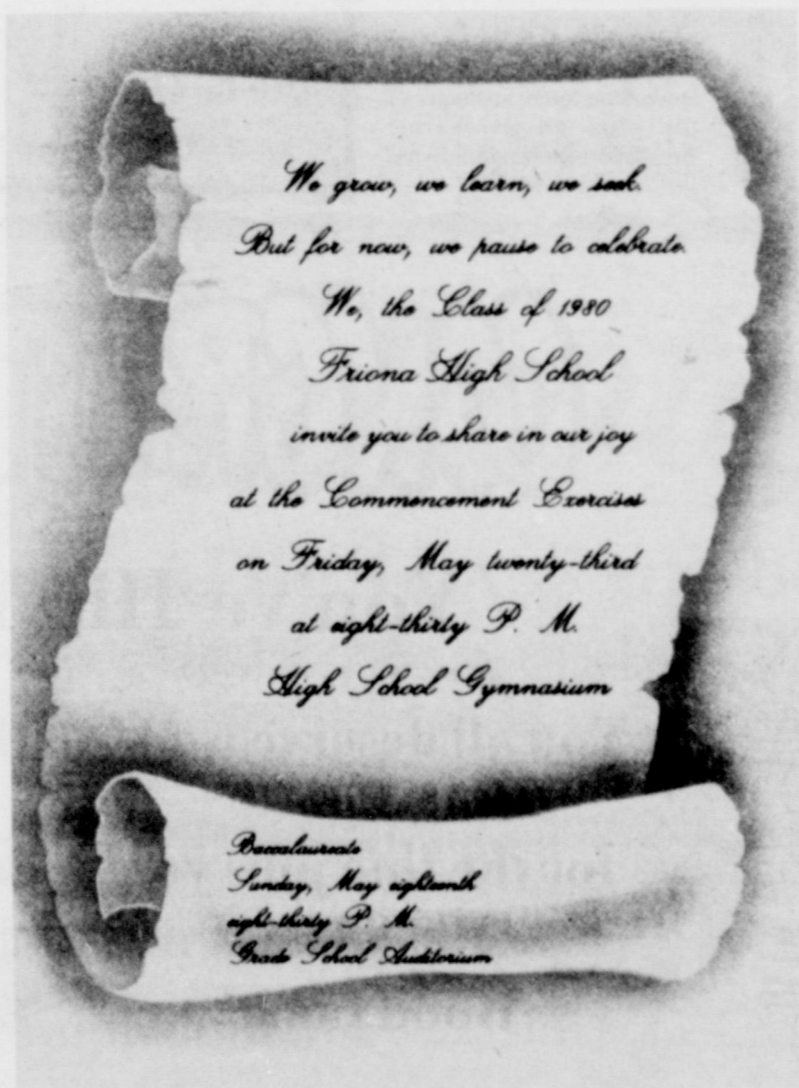 We grow, we learn, we seek.
But for now, we pause to celebrate.
We, the Class of 1980
Friona High School
invite you to share in our joy
at the Commencement Exercises
on Friday, May twenty-third
at eight-thirty P. M.
High School Gymnasium
Baccalaureate
Sunday, May eighteenth
eight-thirty P. M.
Grade School Auditorium